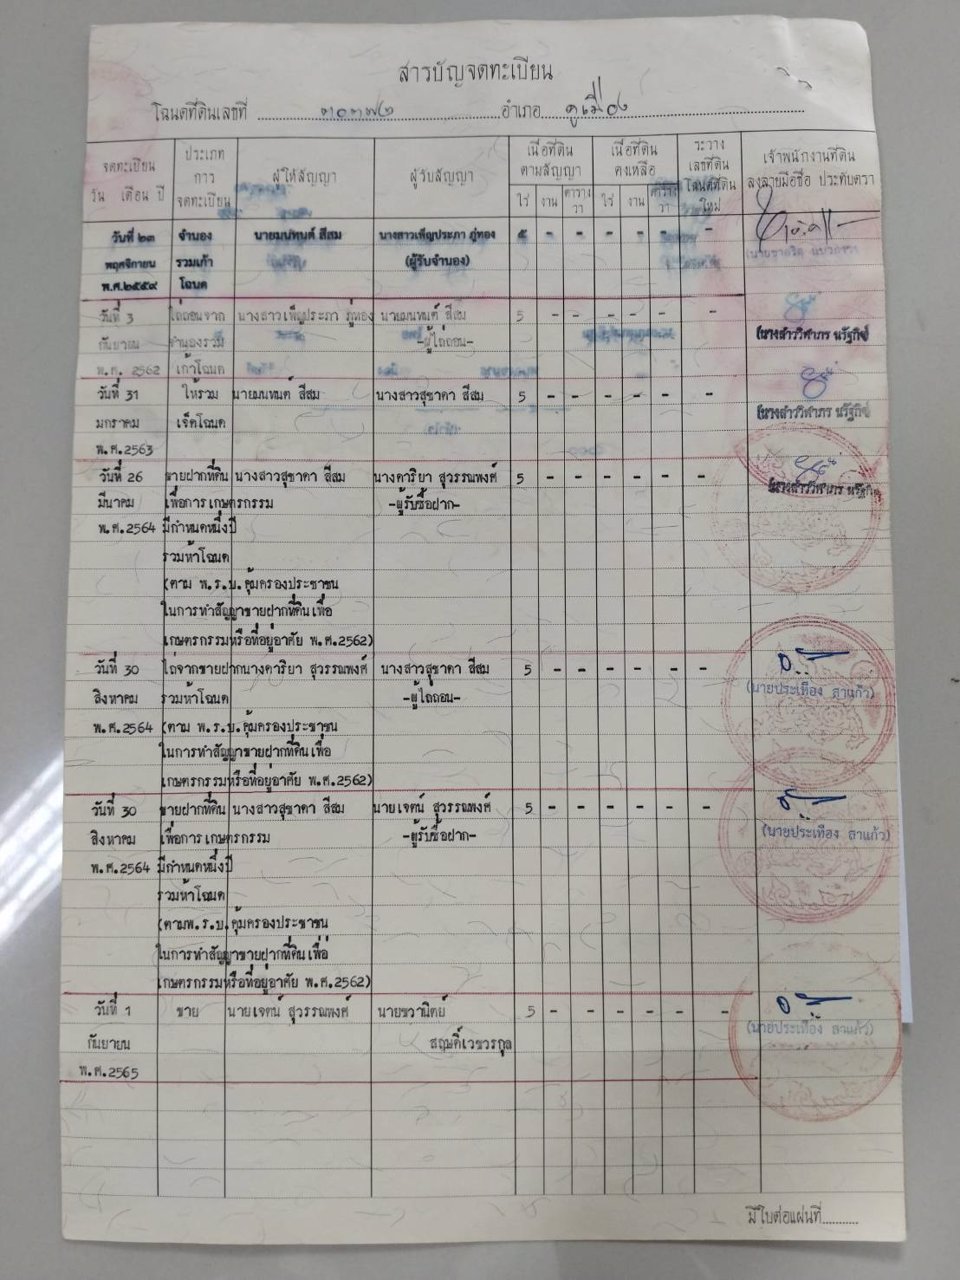 สารบัญจดทะเบียน
โฉนดที่ดินเลขที่ ๓๐๓๗๒ อำเภอ คูเมือง
จดทะเบียน วัน เดือน ปี
ประเภทการจดทะเบียน
ผู้ให้สัญญา
ผู้รับสัญญา
เนื้อที่ดินตามสัญญา
ไร่ งาน ตารางวา
เนื้อที่ดินคงเหลือ
ไร่ งาน ตารางวา
ระวาง เลขที่ดิน โฉนดที่ดินใหม่
เจ้าพนักงานที่ดิน ลงลายมือชื่อ ประทับตรา
วันที่ ๒๓ จำนอง นายมนทนต์ สีสม นางสาวเพ็ญประภา ภู่ทอง ๕ - - - - - -
พฤศจิกายน รวมเก้า (ผู้รับจำนอง)
พ.ศ.๒๕๕๙ โฉนด
วันที่ 3 ไถ่ถอนจาก นางสาวเพ็ญประภา ภู่ทอง นายมนทนต์ สีสม 5 - - - - - -
กันยายน จำนองรวม -ผู้ไถ่ถอน- (นางสาววิฬาภร นรัฐกิจ)
พ.ศ. 2562 เก้าโฉนด
วันที่ 31 ให้รวม นายมนทนต์ สีสม นางสาวสุชาดา สีสม 5 - - - - - -
มกราคม เจ็ดโฉนด (นางสาววิฬาภร นรัฐกิจ)
พ.ศ.2563
วันที่ 26 ขายฝากที่ดิน นางสาวสุชาดา สีสม นางดาริยา สุวรรณพงศ์ 5 - - - - - -
มีนาคม เพื่อการเกษตรกรรม -ผู้รับซื้อฝาก- (นางสาววิฬาภร นรัฐกิจ)
พ.ศ.2564 มีกำหนดหนึ่งปี
รวมห้าโฉนด
(ตาม พ.ร.บ.คุ้มครองประชาชน
ในการทำสัญญาขายฝากที่ดินเพื่อ
เกษตรกรรมหรือที่อยู่อาศัย พ.ศ.2562)
วันที่ 30 ไถ่จากขายฝาก นางดาริยา สุวรรณพงศ์ นางสาวสุชาดา สีสม 5 - - - - - -
สิงหาคม รวมห้าโฉนด -ผู้ไถ่ถอน- (นายประเทือง สาแก้ว)
พ.ศ.2564 (ตาม พ.ร.บ.คุ้มครองประชาชน
ในการทำสัญญาขายฝากที่ดินเพื่อ
เกษตรกรรมหรือที่อยู่อาศัย พ.ศ.2562)
วันที่ 30 ขายฝากที่ดิน นางสาวสุชาดา สีสม นายเจตน์ สุวรรณพงศ์ 5 - - - - - -
สิงหาคม เพื่อการเกษตรกรรม -ผู้รับซื้อฝาก- (นายประเทือง สาแก้ว)
พ.ศ.2564 มีกำหนดหนึ่งปี
รวมห้าโฉนด
(ตามพ.ร.บ.คุ้มครองประชาชน
ในการทำสัญญาขายฝากที่ดินเพื่อ
เกษตรกรรมหรือที่อยู่อาศัย พ.ศ.2562)
วันที่ 1 ขาย นายเจตน์ สุวรรณพงศ์ นายชวานิตย์ 5 - - - - - -
กันยายน สฤษดิ์เวชวรกุล (นายประเทือง สาแก้ว)
พ.ศ.2565
มีใบต่อแผ่นที่